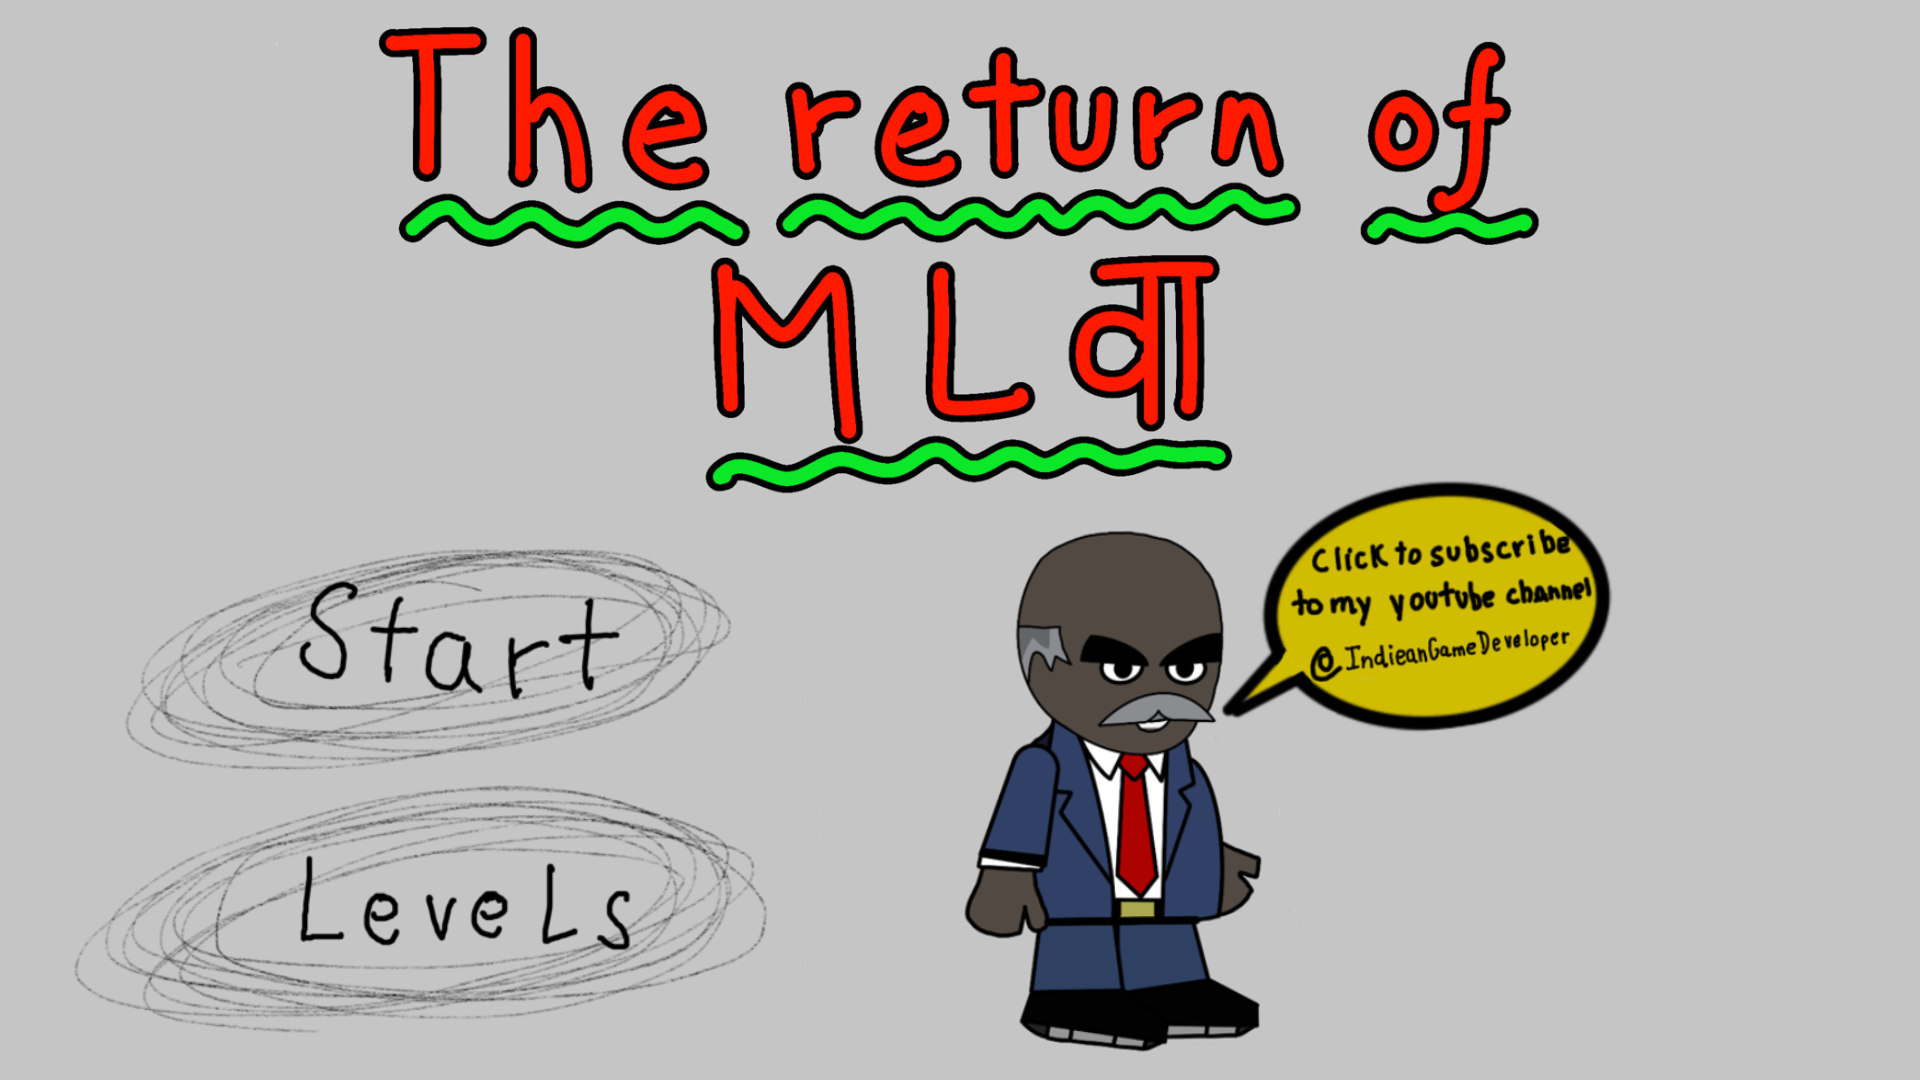 The return of
MLवा
Start
Levels
Click to subscribe
to my youtube channel
@IndieanGameDeveloper